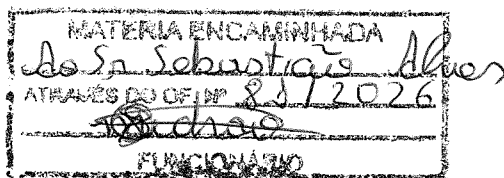 MATERIA ENCAMINHADA
Ao Sr Sebastião Alves
ATRAVÉS DO OF. Nº 81/2026
FUNCIONÁRIO